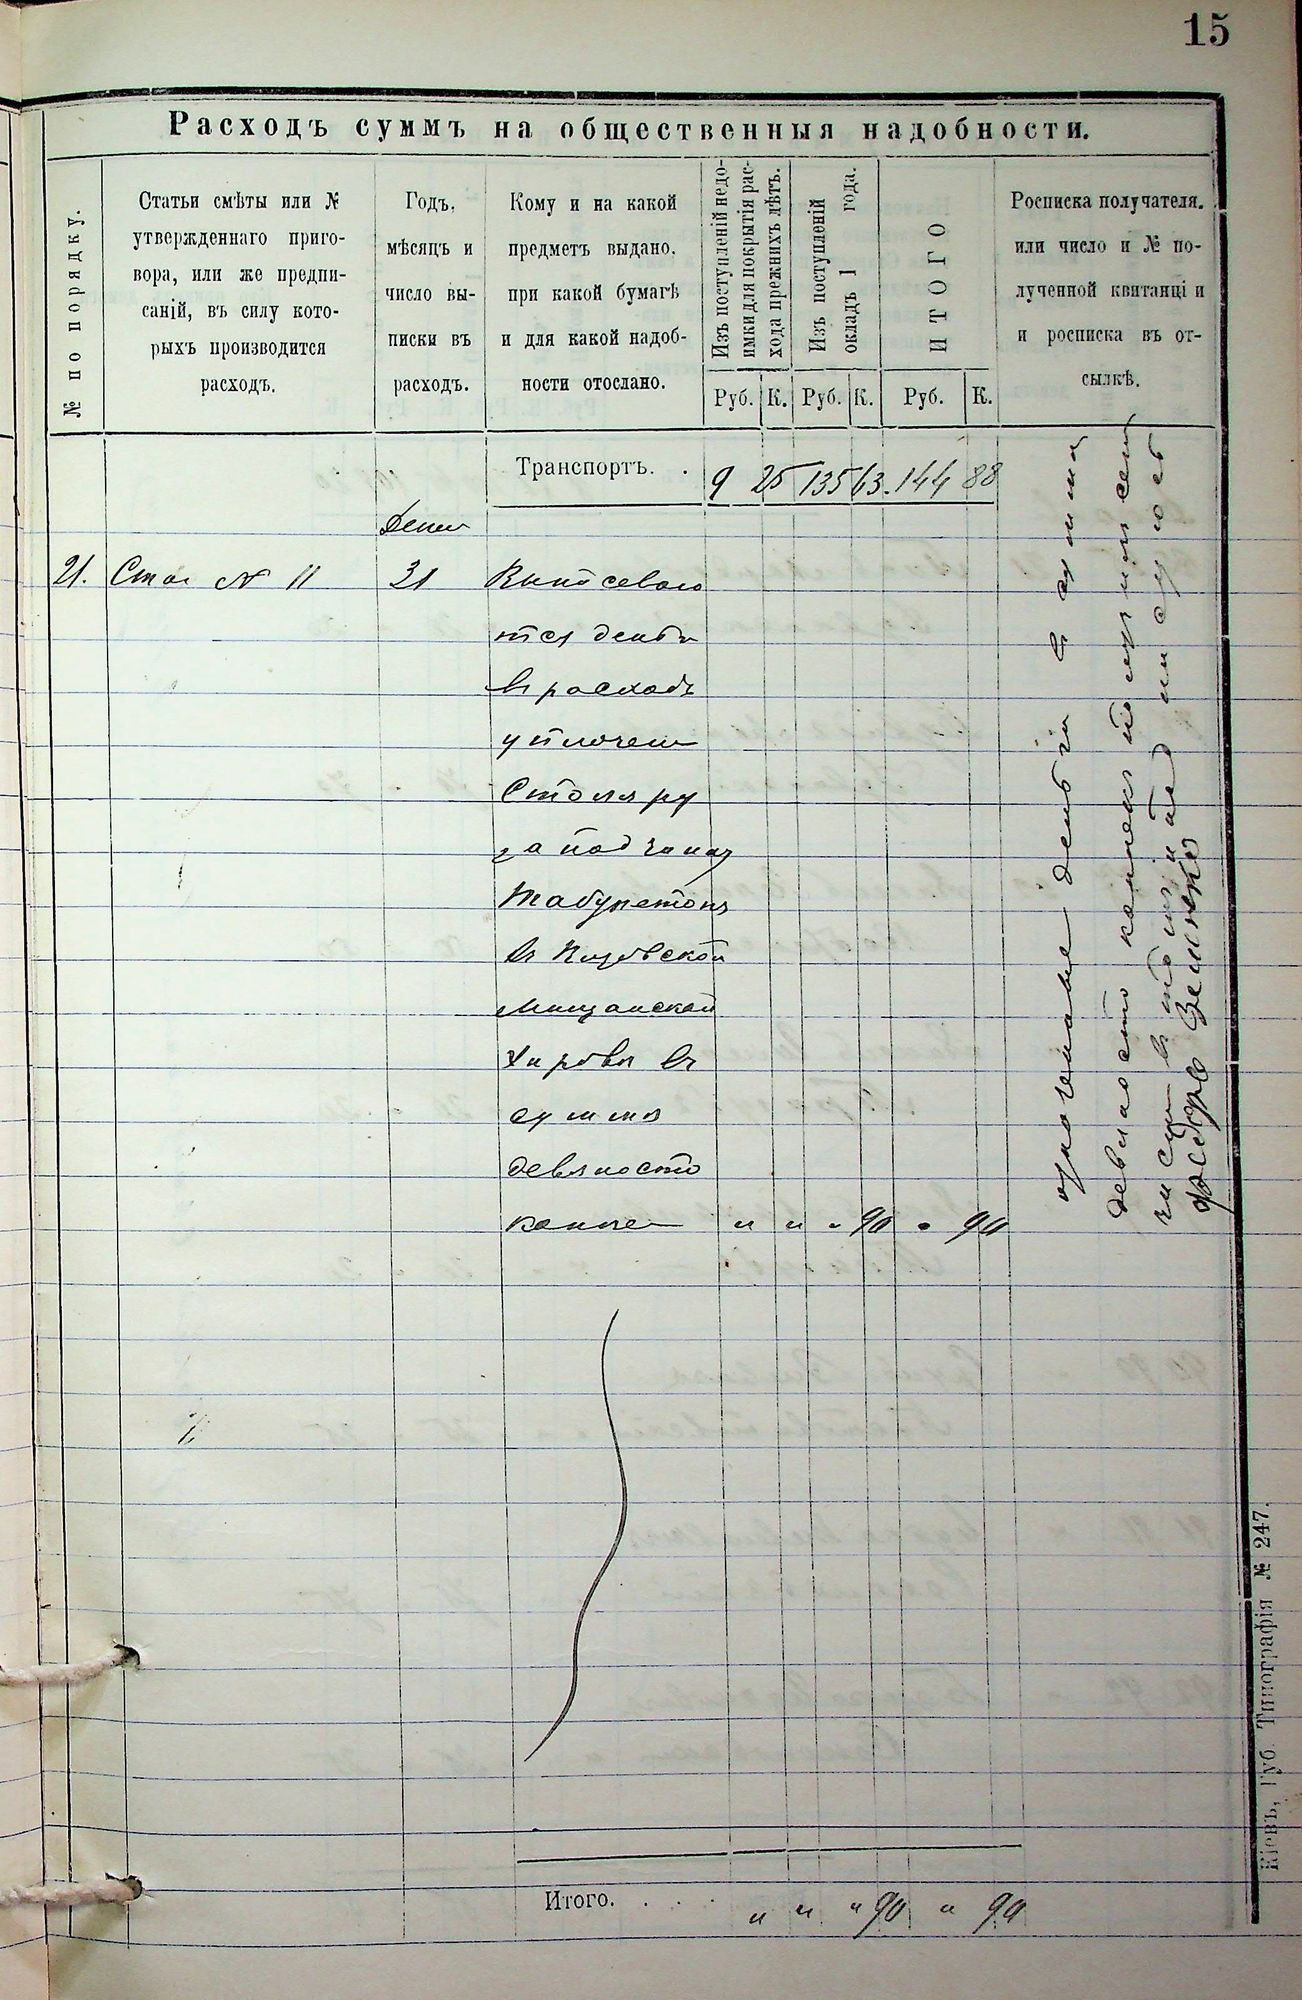 15
Расходъ суммъ на общественныя надобности.
№ по порядку.
Статьи смѣты или №
утвержденнаго приго-
вора, или же предпи-
саній, въ силу кото-
рыхъ производится
расходъ.
Годъ,
мѣсяцъ и
число вы-
писки въ
расходъ.
Кому и на какой
предметъ выдано.
при какой бумагѣ
и для какой надоб-
ности отослано.
Изъ поступленій недо-
имки для покрытія рас-
хода прежнихъ лѣтъ.
Изъ поступленій
окладъ 1 года.
ИТОГО
Росписка получателя.
или число и № по-
лученной квитанці и
и росписка въ от-
сылкѣ.
Руб. К. Руб. К. Руб. К.
Транспортъ. . 9 25 135 63. 144 88
21. № 11 31
тся деньги
в расходъ
уплочен
Столяру
за починку
табуретовъ
в
Мищанской
Управы в
сумми
девяносто
копие " " " 90 " 90
деньги в сумми
девяносто копекъ получил сем
числ в том и
Федоръ
Итого. . . . " " " 90 " 90
Кіевъ, Губ. Типографія № 247.